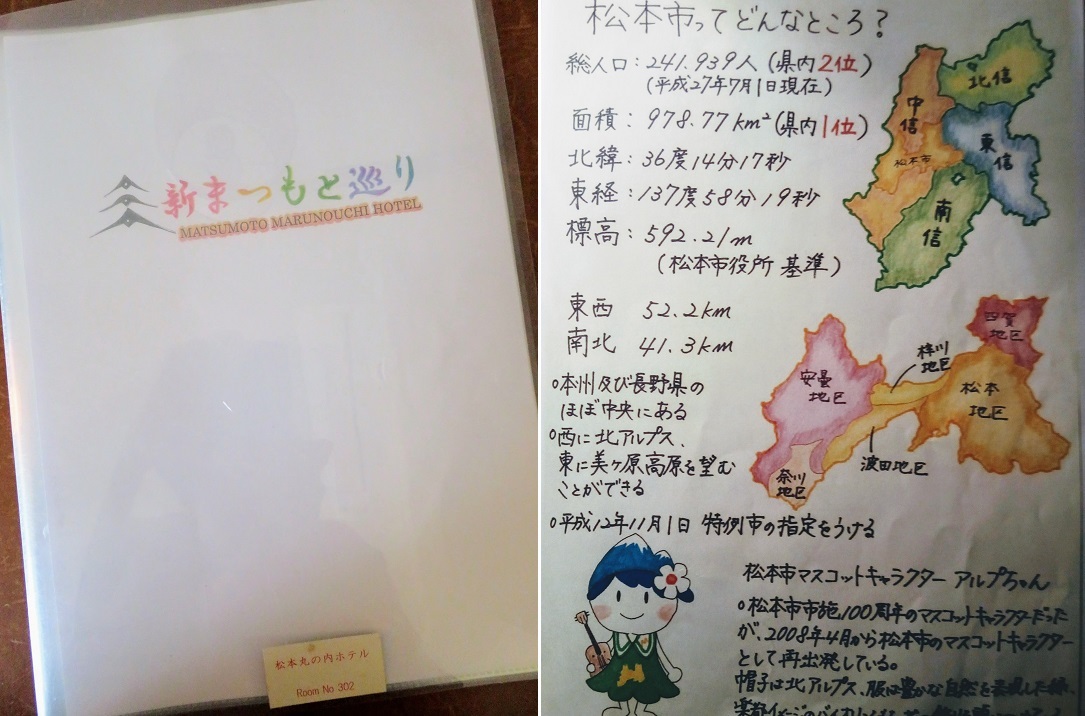 新まつもと巡り
MATSUMOTO MARUNOUCHI HOTEL
松本丸の内ホテル
Room No 302
松本市ってどんなところ?
総人口:241.939人(県内2位)
(平成27年7月1日現在)
面積:978.77km²(県内1位)
北緯:36度14分17秒
東経:137度58分19秒
標高:592.21m
(松本市役所 基準)
北信
中信
東信
松本市
南信
東西 52.2km
南北 41.3km
四賀
地区
梓川
地区
安曇
地区
松本
地区
波田地区
奈川
地区
○本州及び長野県の
ほぼ中央にある
○西に北アルプス、
東に美ヶ原高原を望む
ことができる
○平成12年11月1日 特例市の指定をうける
松本市マスコットキャラクター アルプちゃん
○松本市市施100周年のマスコットキャラクターだった
が、2008年4月から松本市のマスコットキャラクター
として再出発している。
帽子は北アルプス、服は豊かな自然を表現した緑、